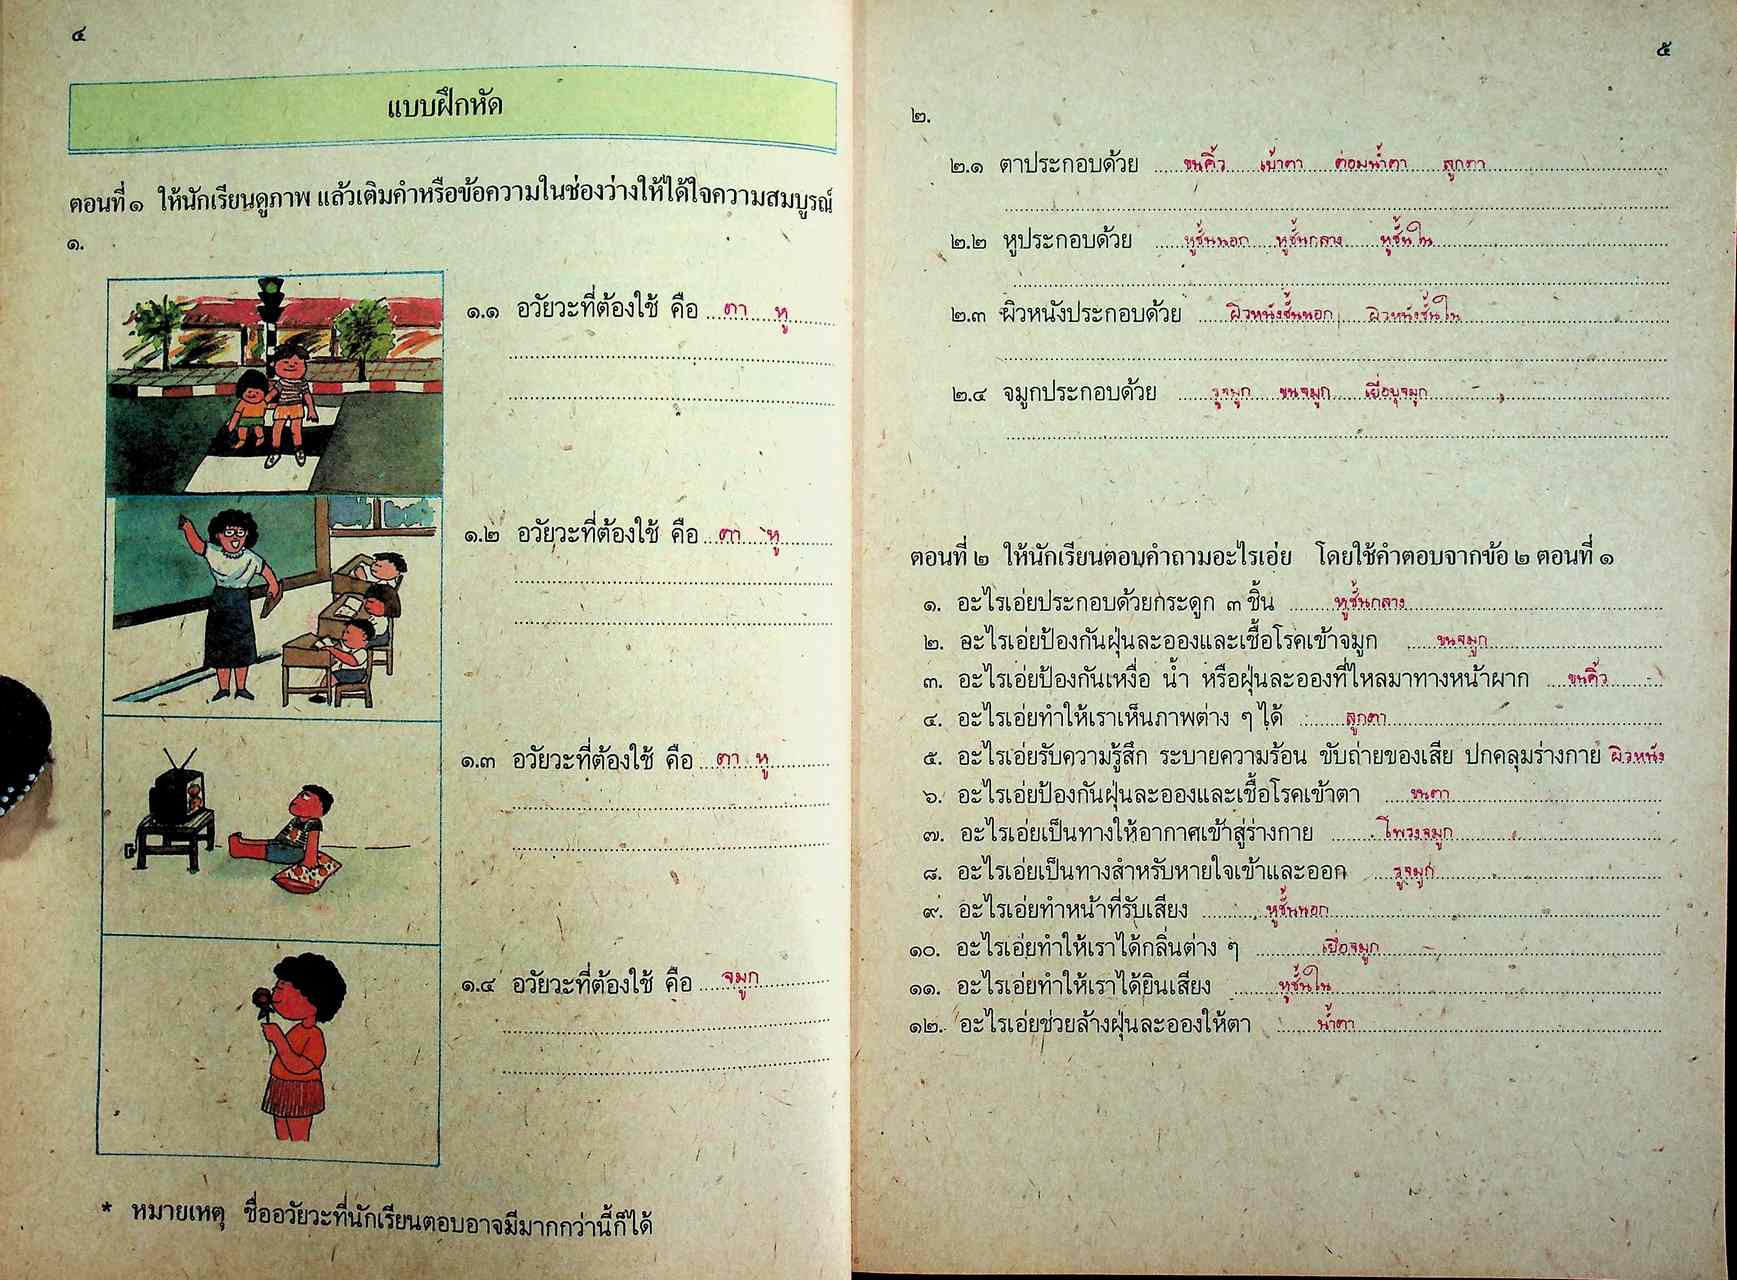 ๔
แบบฝึกหัด
ตอนที่ ๑ ให้นักเรียนดูภาพ แล้วเติมคำหรือข้อความในช่องว่างให้ได้ใจความสมบูรณ์
๑.
๑.๑ อวัยวะที่ต้องใช้ คือ ตา หู
๑.๒ อวัยวะที่ต้องใช้ คือ ตา หู
๑.๓ อวัยวะที่ต้องใช้ คือ ตา หู
๑.๔ อวัยวะที่ต้องใช้ คือ จมูก
* หมายเหตุ ชื่ออวัยวะที่นักเรียนตอบอาจมีมากกว่านี้ก็ได้
๕
๒.
๒.๑ ตาประกอบด้วย ขนคิ้ว เบ้าตา ต่อมน้ำตา ลูกตา
๒.๒ หูประกอบด้วย หูชั้นนอก หูชั้นกลาง หูชั้นใน
๒.๓ ผิวหนังประกอบด้วย ผิวหนังชั้นนอก ผิวหนังชั้นใน
๒.๔ จมูกประกอบด้วย รูจมูก ขนจมูก เยื่อบุจมูก
ตอนที่ ๒ ให้นักเรียนตอบคำถามอะไรเอ่ย โดยใช้คำตอบจากข้อ ๒ ตอนที่ ๑
๑. อะไรเอ่ยประกอบด้วยกระดูก ๓ ชิ้น หูชั้นกลาง
๒. อะไรเอ่ยป้องกันฝุ่นละอองและเชื้อโรคเข้าจมูก ขนจมูก
๓. อะไรเอ่ยป้องกันเหงื่อ น้ำ หรือฝุ่นละอองที่ไหลมาทางหน้าผาก ขนคิ้ว
๔. อะไรเอ่ยทำให้เราเห็นภาพต่าง ๆ ได้ ลูกตา
๕. อะไรเอ่ยรับความรู้สึก ระบายความร้อน ขับถ่ายของเสีย ปกคลุมร่างกาย ผิวหนัง
๖. อะไรเอ่ยป้องกันฝุ่นละอองและเชื้อโรคเข้าตา ขนตา
๗. อะไรเอ่ยเป็นทางให้อากาศเข้าสู่ร่างกาย โพรงจมูก
๘. อะไรเอ่ยเป็นทางสำหรับหายใจเข้าและออก รูจมูก
๙. อะไรเอ่ยทำหน้าที่รับเสียง หูชั้นนอก
๑๐. อะไรเอ่ยทำให้เราได้กลิ่นต่าง ๆ เยื่อจมูก
๑๑. อะไรเอ่ยทำให้เราได้ยินเสียง หูชั้นใน
๑๒. อะไรเอ่ยช่วยล้างฝุ่นละอองให้ตา น้ำตา